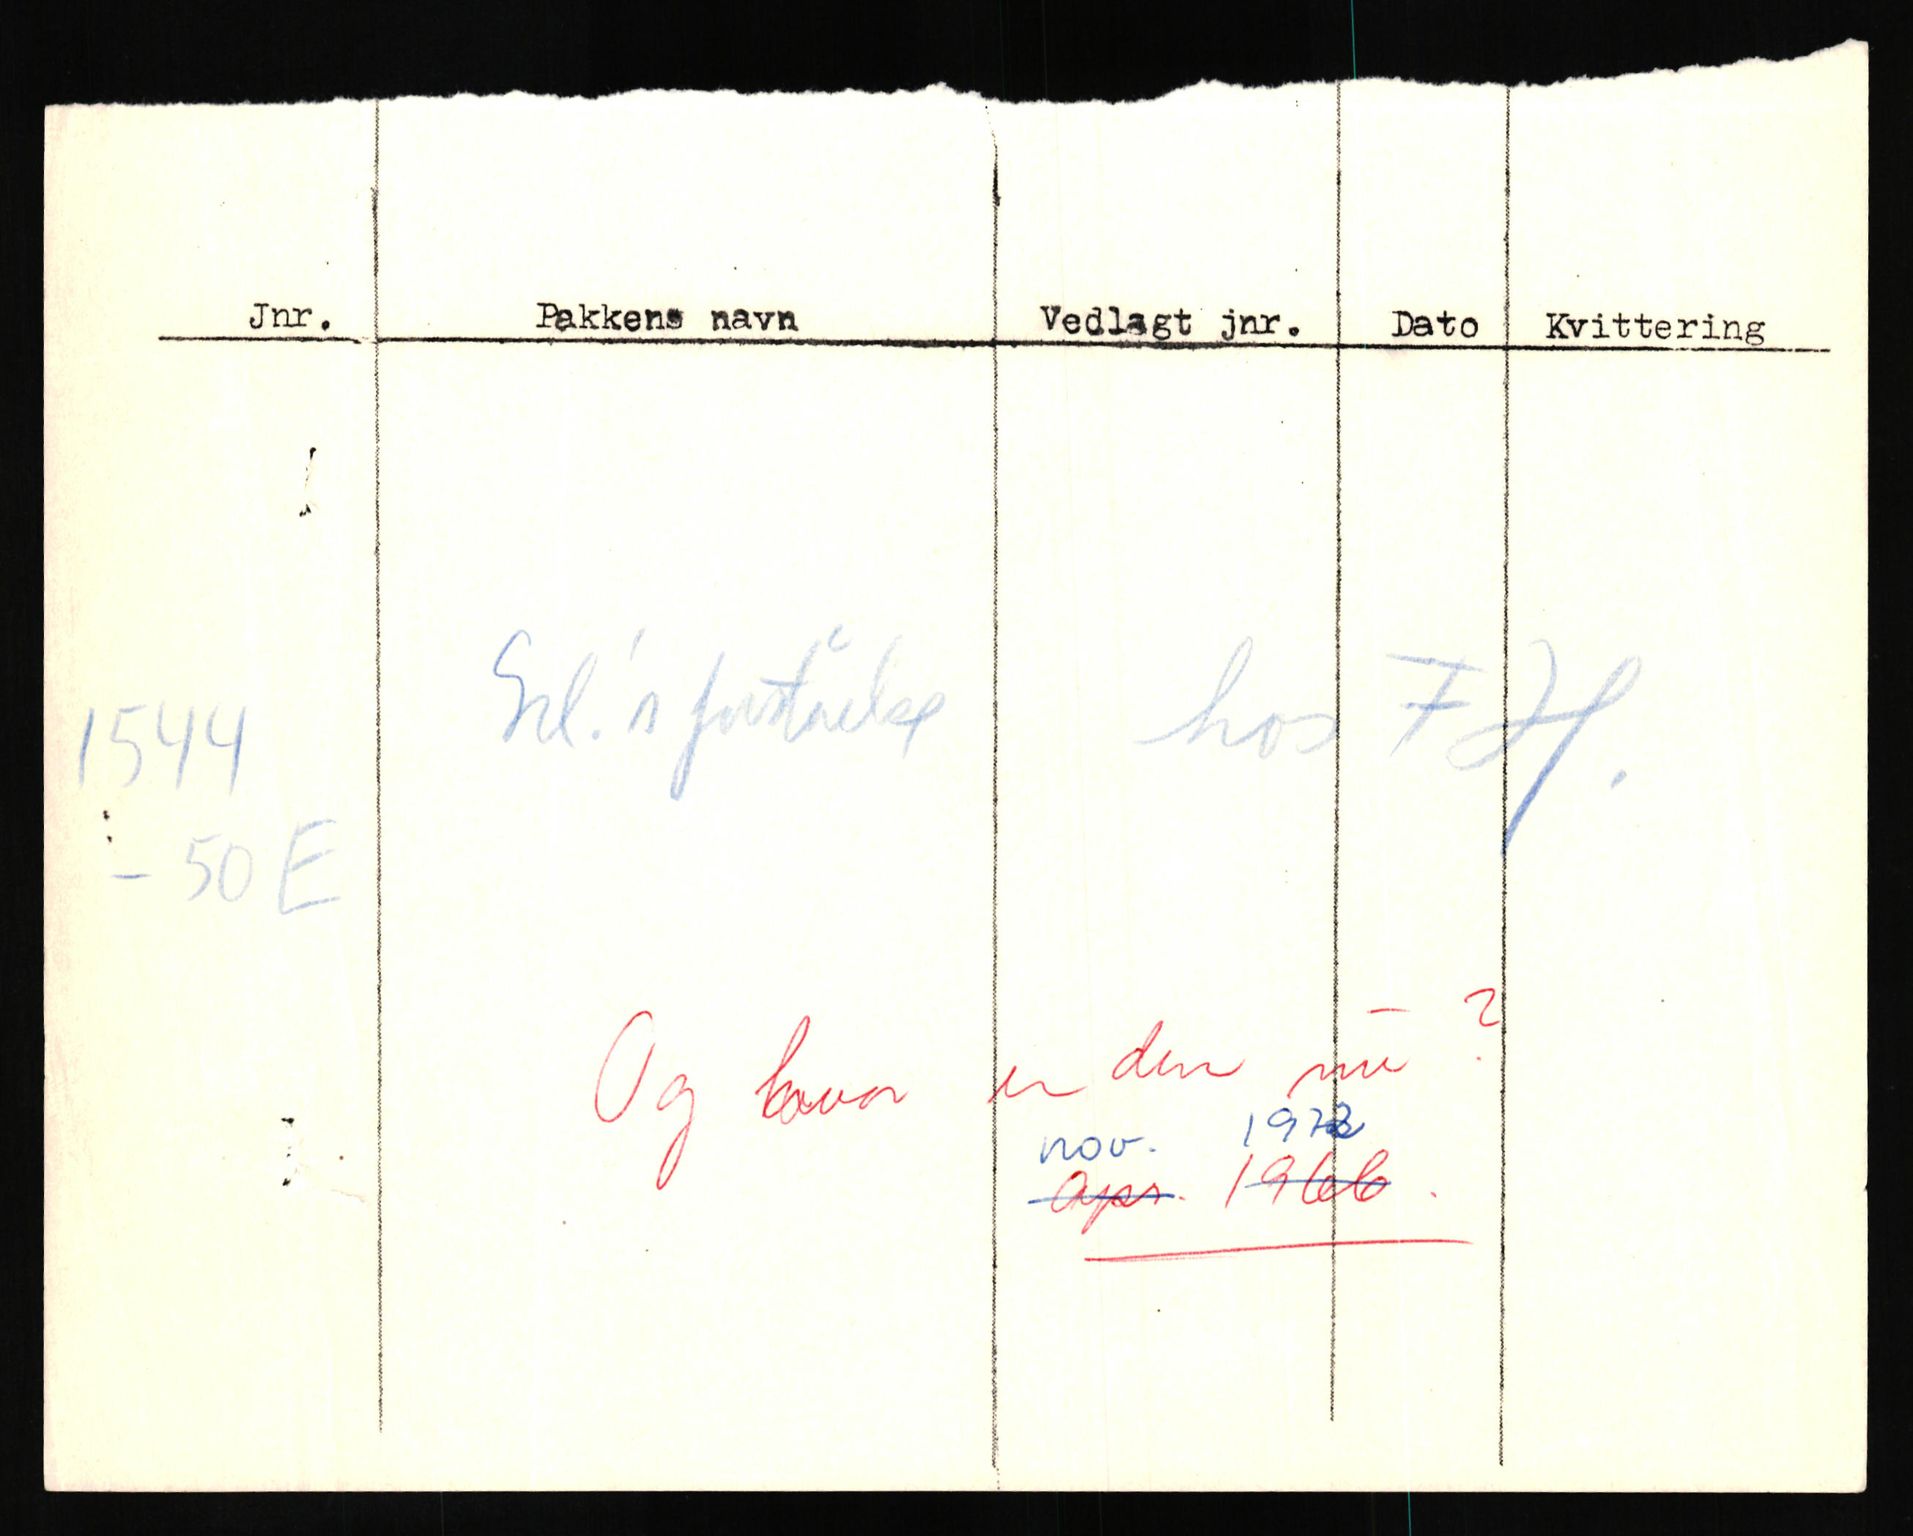 Jnr. Pakkens navn Vedlagt jnr. Dato Kvittering
1544 Grl.'s forståelse hos FH.
- 50 E
Og hvor er den nu?
nov. 1972
apr. 1966.